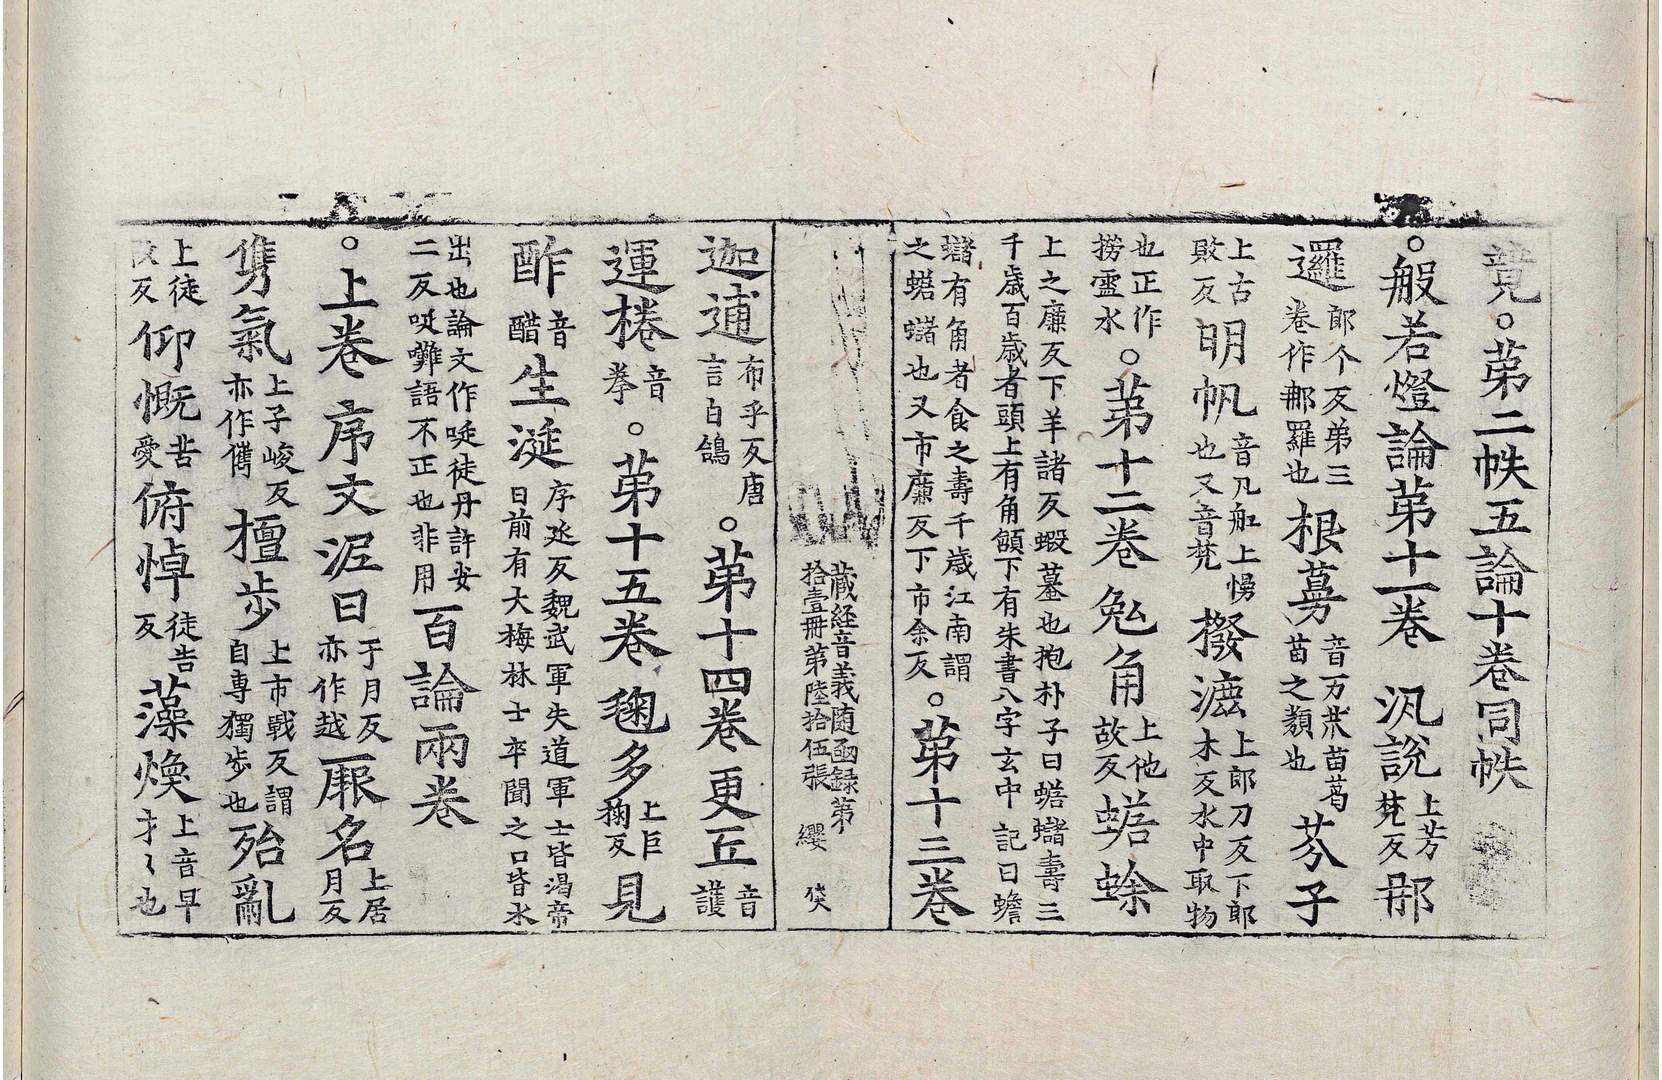 竟。○第二帙五論十卷同帙
○般若燈論第十一卷 汎說上芳梵反那
邏郎个反弟三卷作那羅也根蔓音万菜苗蔔苗之類也芬子
上古敗反明帆音凡舡上慢也又音梵撥漉上郎刀反下郎木反水中取物
也正作撈漉水○第十二卷兔角上他故反蟾蜍
上之廉反下羊諸反蝦蟇也抱朴子曰蟾蠩壽三千歲百歲者頭上有角頷下有朱書八字玄中記曰蟾
蠩有角者食之壽千歲江南謂之蟾蠩也又市廉反下市余反○第十三卷
藏経音義随函録第拾壹冊第陸拾伍張 纓
迦逋布乎反唐言白鴿○第十四卷更互音護
運棬音拳○第十五卷 毱多上巨掬反見
酢音醋生涎序延反魏武軍失道軍士皆渴帝曰前有大梅林士卒聞之口皆水
出也論文作唌徒丹許安二反唌囋語不正也非用百論兩卷
○上卷序文泥曰于月反亦作越厥名上居月反
雋氣上子峻反亦作儁擅步上市戰反謂自專獨步也殆亂
上徒改反仰慨苦愛俯悼徒告反藻煥上音早才〻也